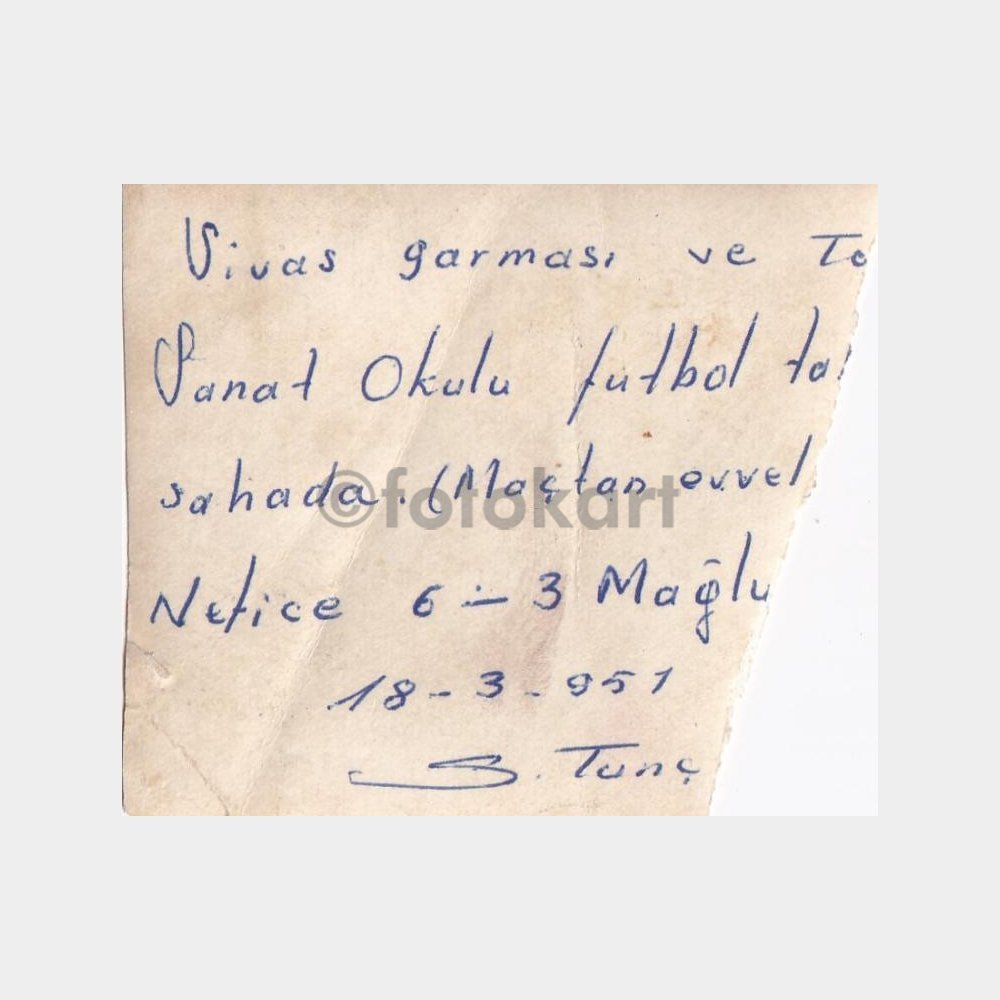 Sivas garması ve To
Sanat Okulu futbol ta
sahada. (Maçtan evvel
Netice 6-3 Mağlu
18-3-951
S. Tunç
©fotokart